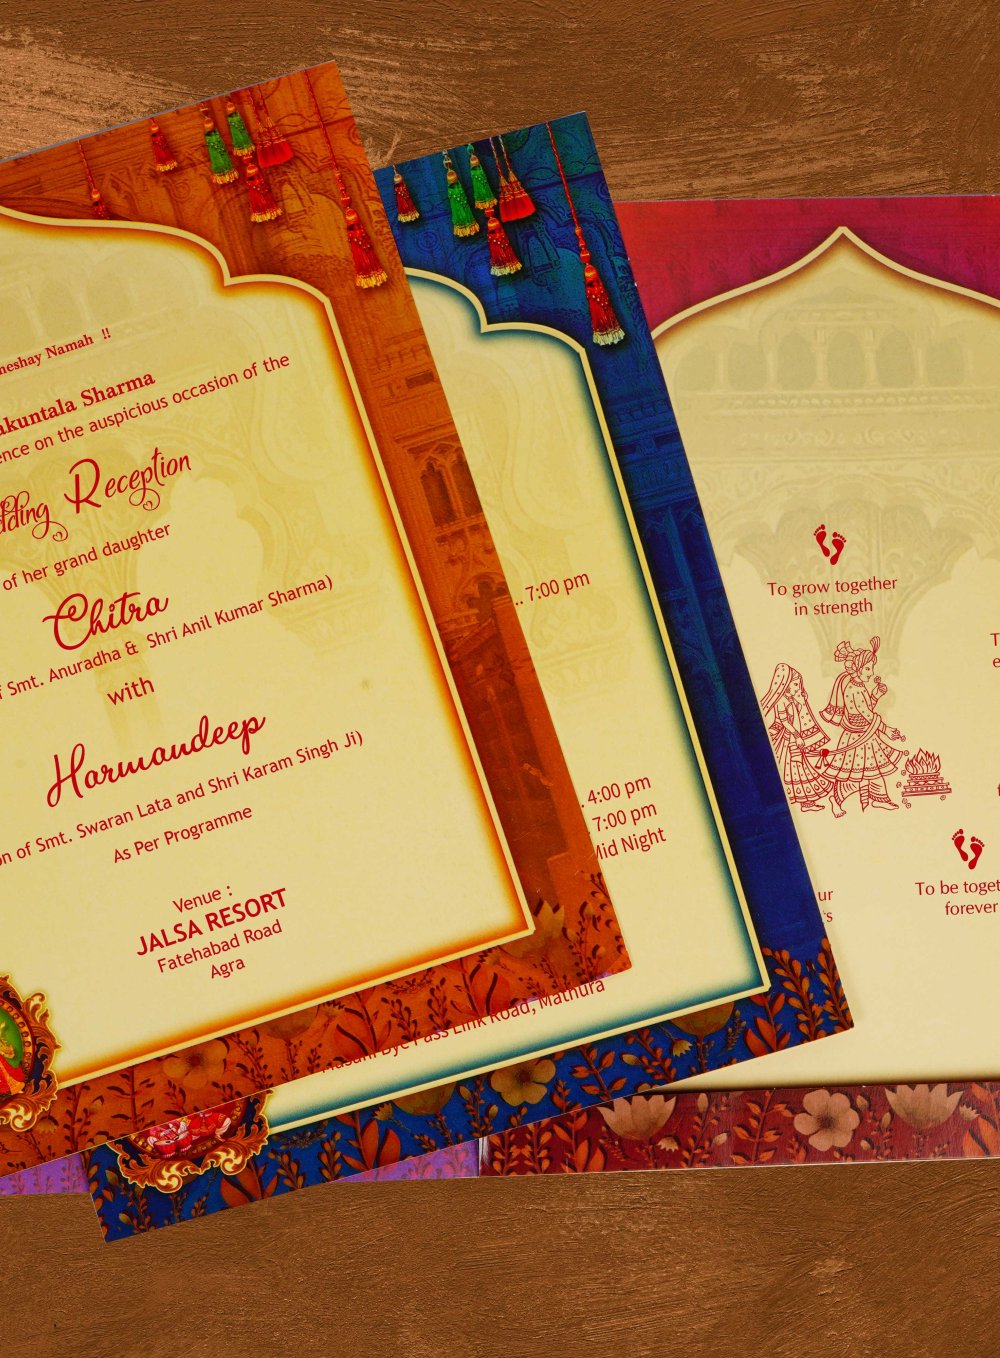 Namah !!
Sharma
on the auspicious occasion of the
Reception
of her grand daughter
Chitra
Smt. Anuradha & Shri Anil Kumar Sharma)
with
Harmandeep
of Smt. Swaran Lata and Shri Karam Singh Ji)
As Per Programme
Venue :
JALSA RESORT
Fatehabad Road
Agra
.. 7:00 pm
. 4:00 pm
7:00 pm
Mid Night
Bye Pass Link Road, Mathura
To grow together
in strength
To be
forever